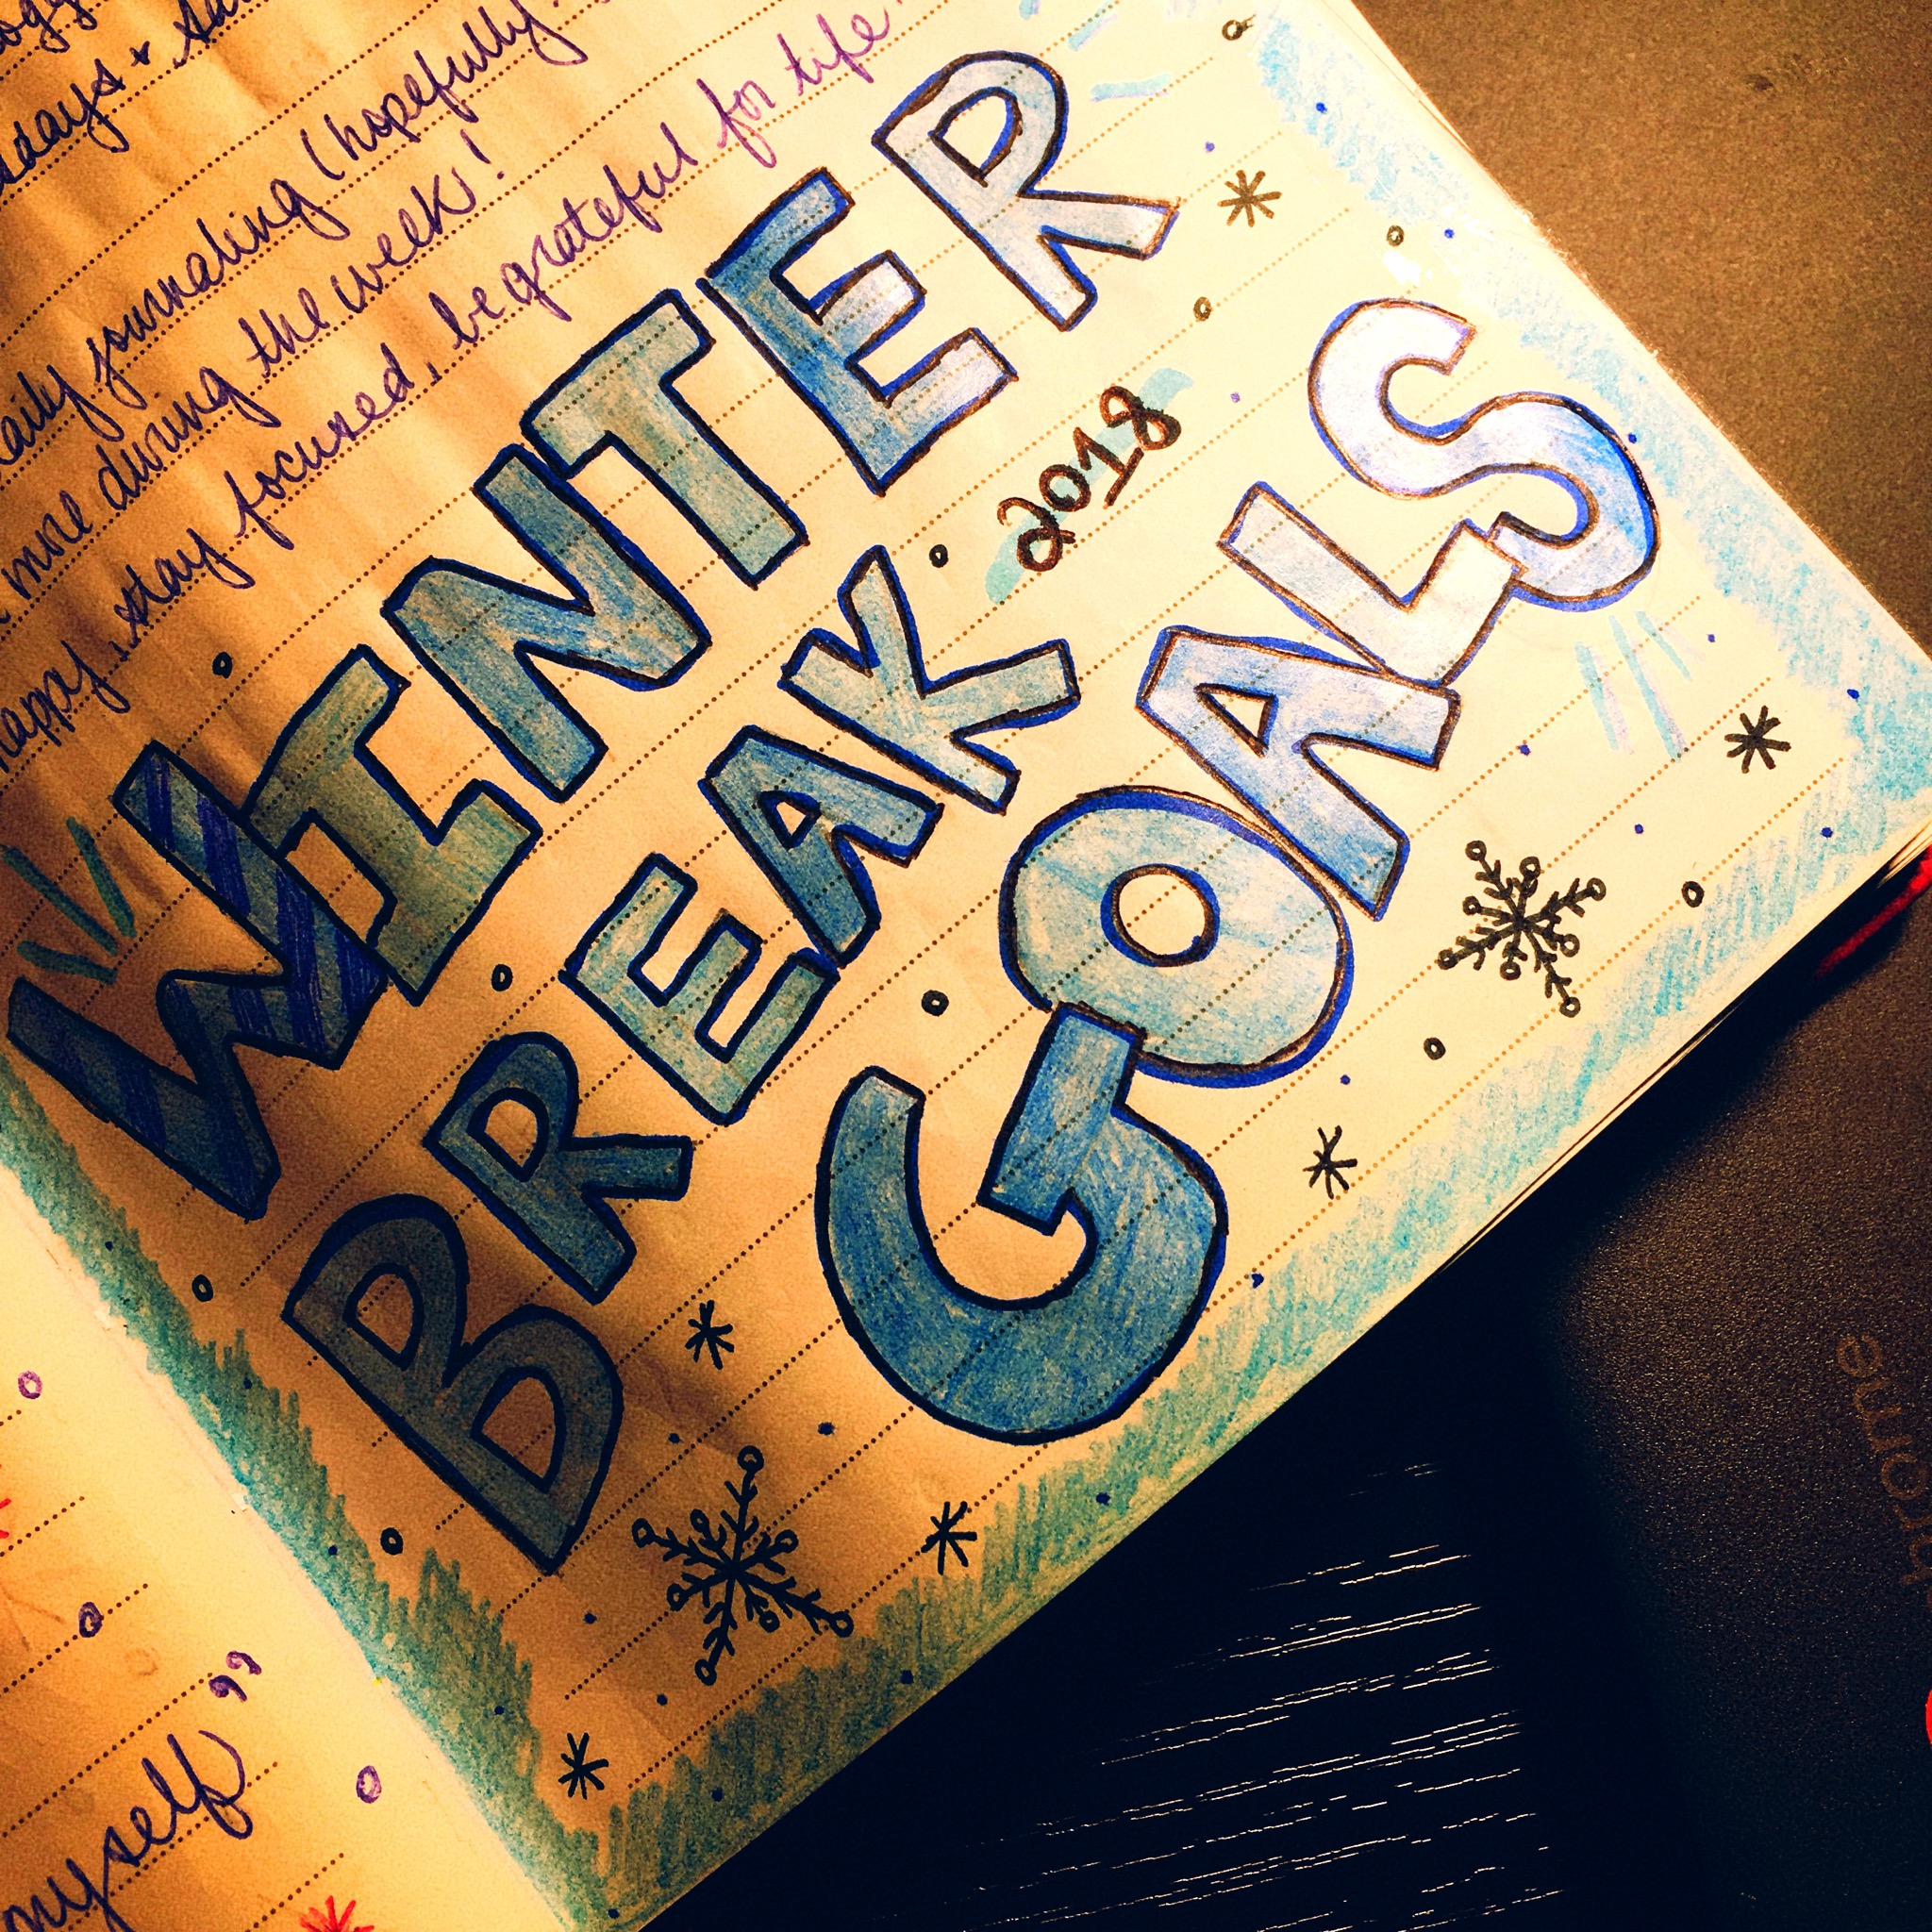 days + 
daily journaling (hopefully
more during the week!
happy, stay focused, be grateful for life
WINTER
BREAK 2018
GOALS
myself”